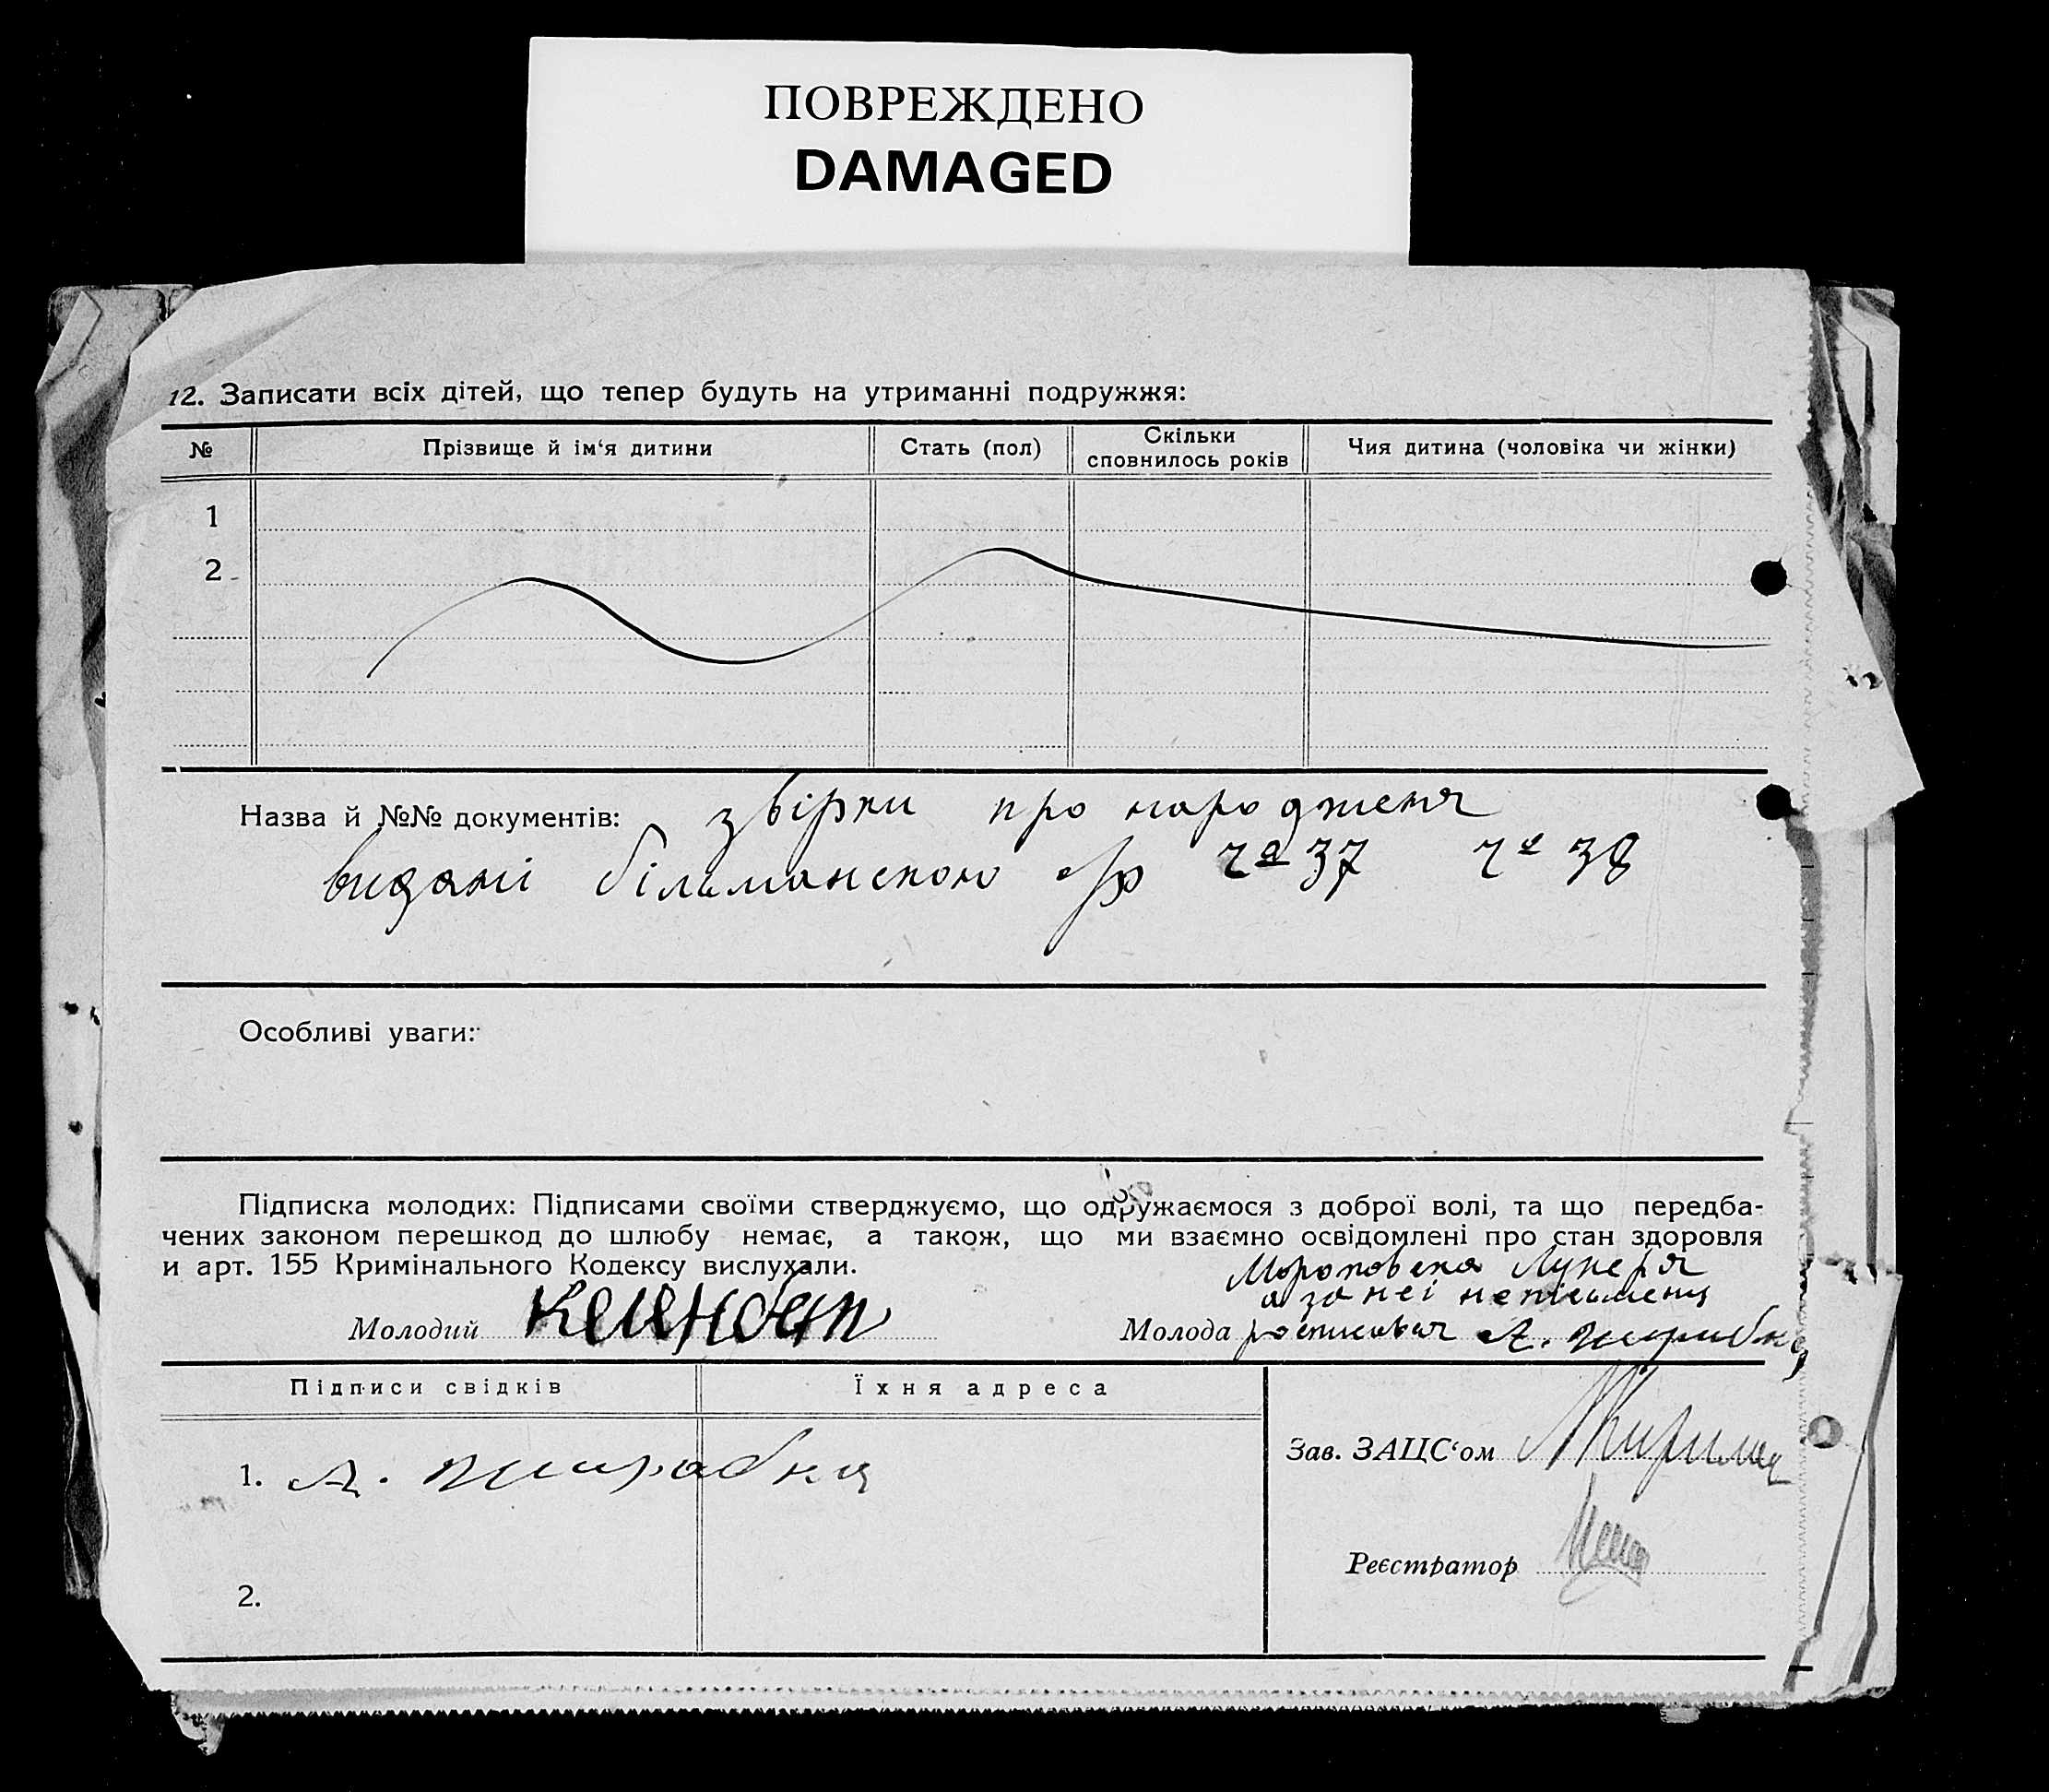 ПОВРЕЖДЕНО
DAMAGED
12. Записати всіх дітей, що тепер будуть на утриманні подружжя:
№ Прізвище й ім‘я дитини Стать (пол) Скільки сповнилось років Чия дитина (чоловіка чи жінки)
1
2
Назва й №№ документів: звірки про народженя
видані більманскою с/р 37 38
Особливі уваги:
Підписка молодих: Підписами своїми стверджуємо, що одружаємося з доброї волі, та що передба-
чених законом перешкод до шлюбу немає, а також, що ми взаємно освідомлені про стан здоровля
и арт. 155 Кримінального Кодексу вислухали.
Лукеря
а за неї
Молодий Молода росписався А.
Підписи свідків Їхня адреса
Зав. ЗАЦС‘ом
1. А.
Реєстратор
2.